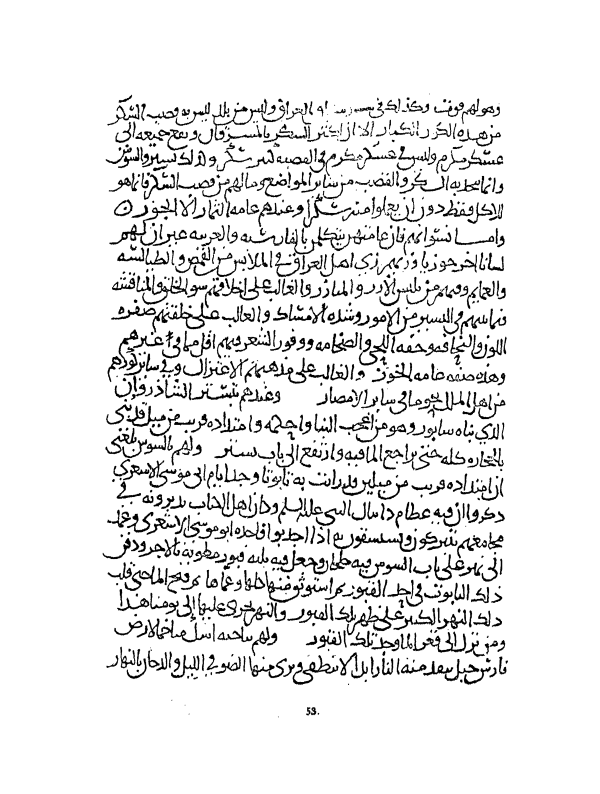 وهو لهم قوت وكذلك في العراق وليس من بلد ليس به قصب السكر
من هذه الكور الكبار الا ان اكثر السكر بالمسرقان ويقع جميعه الى
عسكر مكرم وليس في عسكر مكرم في القصبة كثير سكر وكذلك بتستر والسوس
وانما يتخذ به السكر والقصب من سائر المواضع وما لهم من قصب السكر فانما هو
للاكل فقط دون ان يعملوا منه سكرا وعندهم عامه الثمار الا الجوز ○
واما لسانهم فان عامتهم يتكلم بالفارسيه والعربيه غير ان لهم
لسانا اخر خوزيا وزيهم زي اهل العراق في الملابس من القمص والطيالسه
والعمايم وفيهم من يلبس الازر والميازر والغالب على اخلاقهم سو الخلق والمنافسه
فيما بينهم في اليسير من الامور وشده الامساك والغالب على خلقتهم صفره
اللون والنحافه وخفه اللحى والضخامه ووفور الشعر فيهم اقل مما في غيرهم
وهذه صفه عامه الخوز والغالب على مذهبهم الاعتزال وفي سائر كورهم
من اهل الملل نحو ما في سائر الامصار وعندهم بتستر الشاذروان
الذي بناه سابور وهو من اعجب البنا واحكمه وامتداده قريب من ميل قد بنى
بالحجاره كله حتى تراجع الما فيه وارتفع الى باب تستر ولهم بالسوس بلغني
ان امتداده قريب من ميلين وذكرت به تابوتا وجد ايام ابي موسى الاشعري
ذكروا ان فيه عظام دانيال النبي عليه السلم وكان اهل الكتاب يديرونه في
مجامعهم يتبركون ويستسقون به اذا اجدبوا فاخذه ابو موسى الاشعري وعمد
الى نهر على باب السوس فيه خليجا وجعل فيه ثلثه قبور مطويه بالاجر ودفن
ذلك التابوت في احد القبور ثم استوثق منها كلها وعماها ثم فتح الما حتى قلب
ذلك النهر الكبير على ظهر تلك القبور والنهر يجري عليها الى يومنا هذا
ومن نزل الى قعر الما وجد تلك القبور ولهم بناحيه اسك متاخما لارض
فارس جبل يتقد منه النار ابدا لا تنطفي ويرى منها الضو في الليل والدخان بالنهار
53.